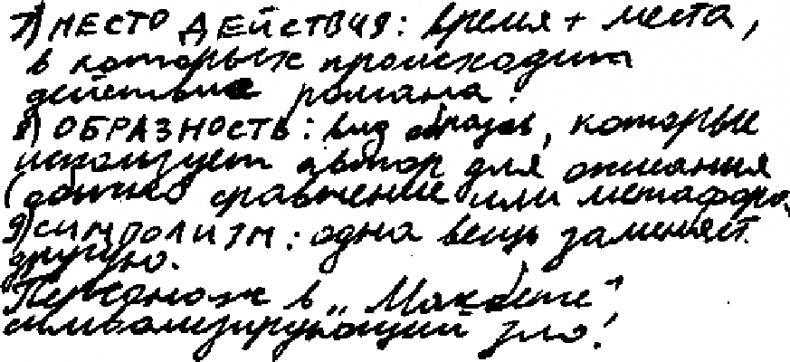 7) МЕСТО ДЕЙСТВИЯ: время + места,
в которых происходит
действие романа.
8) ОБРАЗНОСТЬ: вид образов, которые
использует автор для описания
(обычно сравнение или метафора
9) СИМВОЛИЗМ: одна вещь заменяет
другую.
Персонаж в „Макбете"
символизирующий зло!